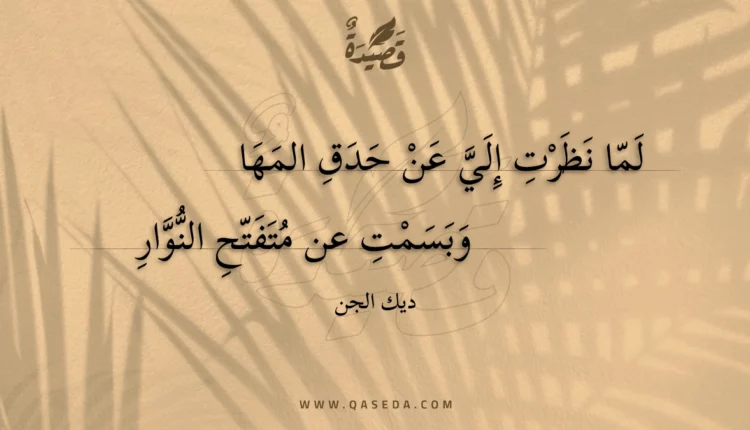 قَصِيْدَةٌ
لَمّا نَظَرْتِ إِلَيَّ عَنْ حَدَقِ المَهَا
وَبَسَمْتِ عن مُتَفَتّحِ النُّوَّارِ
ديك الجن
WWW.QASEDA.COM